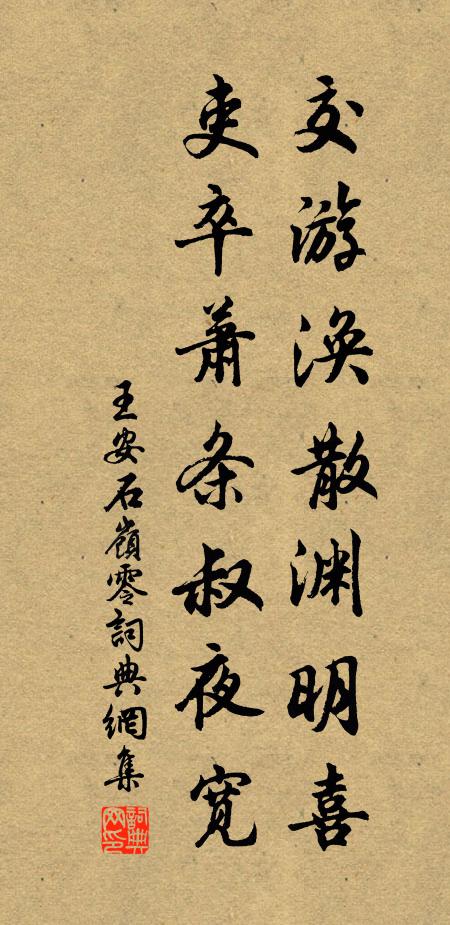 交游涣散渊明喜
吏卒萧条叔夜宽
王安石嶺零詞典網集
詞典網印